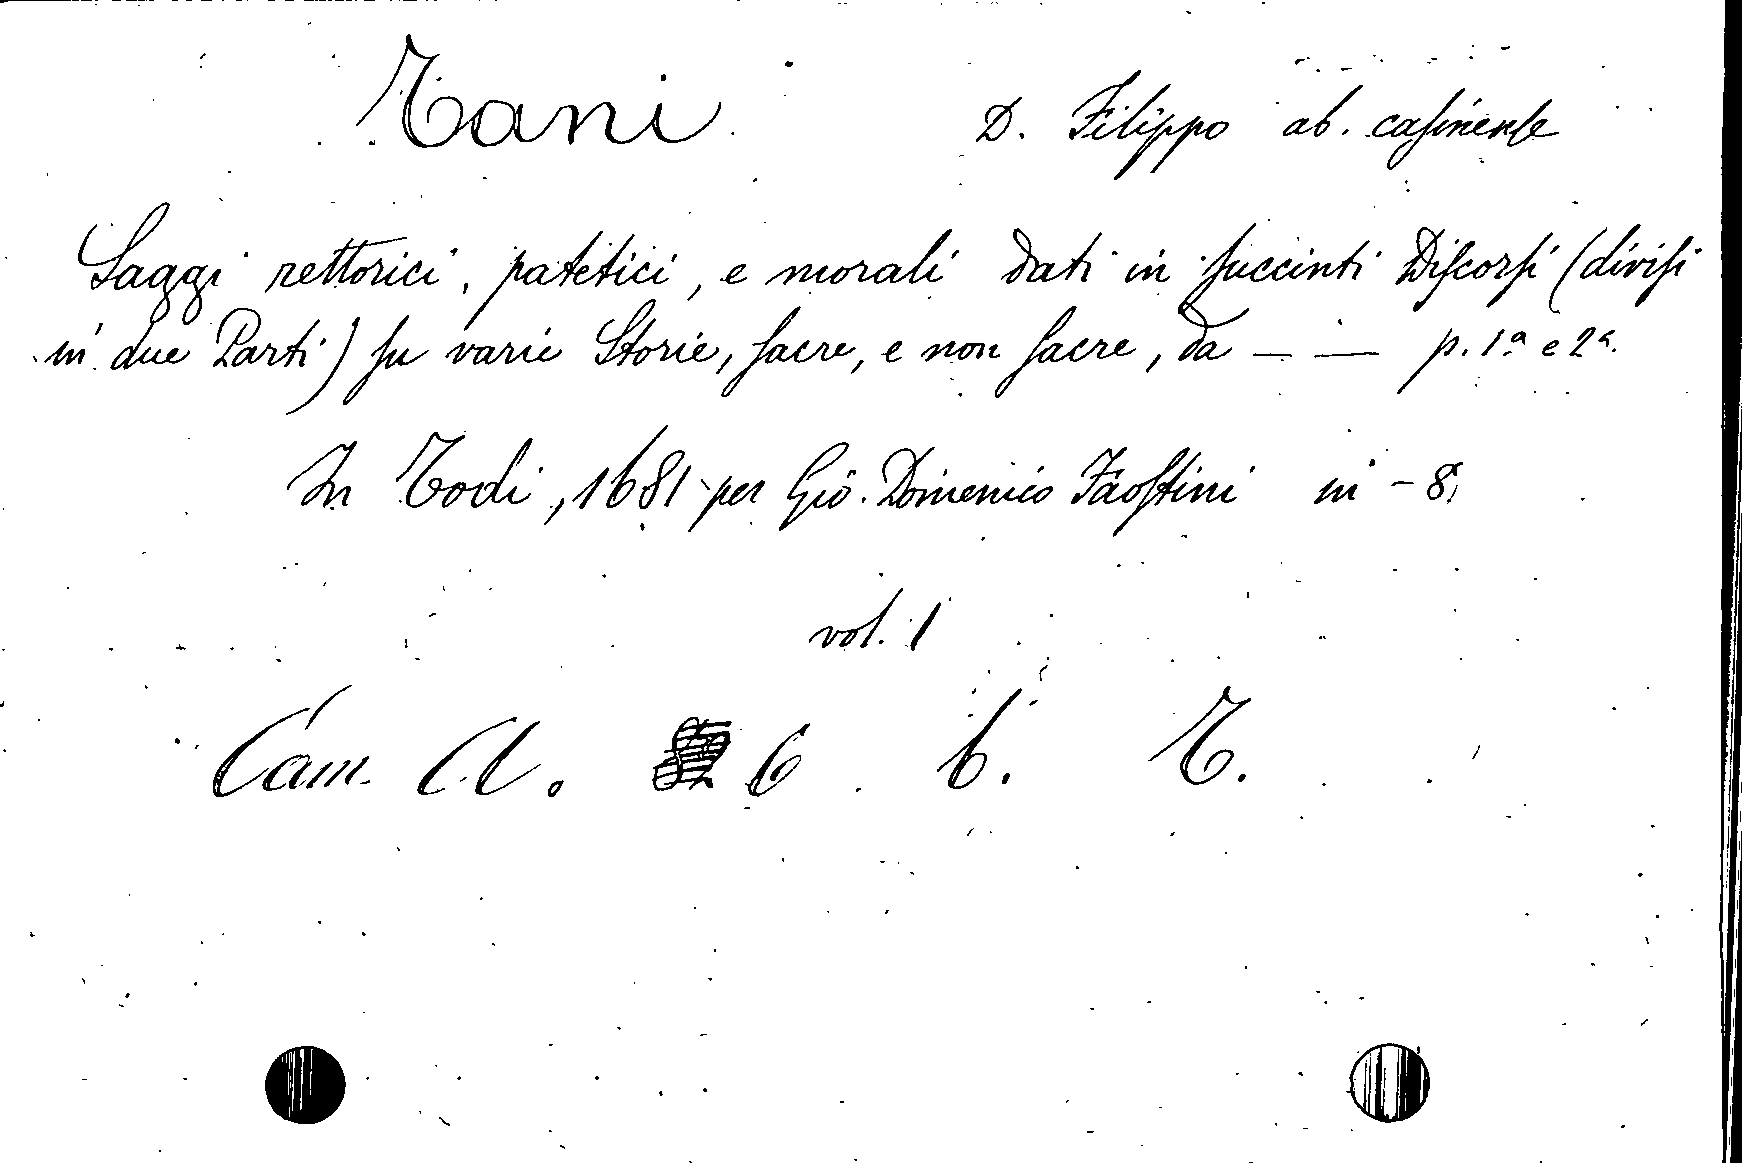 Tani D. Filippo ab. casinense
Saggi rettorici, patetici, e morali dati in succinti Discorsi (divisi
in due Parti) su varie Storie, sacre, e non sacre, da — — p. 1ª e 2ª.
In Todi, 1681 per Gio. Domenico Faostini in - 8.
vol. 1
Cam. Cl. 6 b. T.